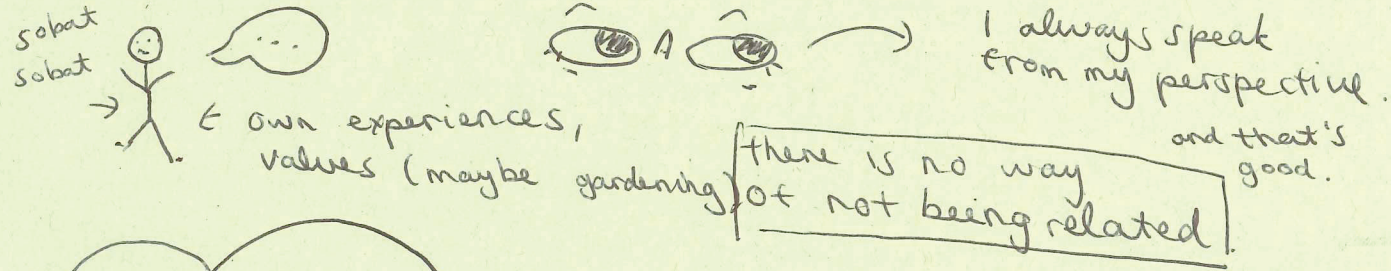 sobat
sobat
...
own experiences,
values (maybe gardening)
I always speak
from my perspective.
and that's
good.
there is no way
of not being related